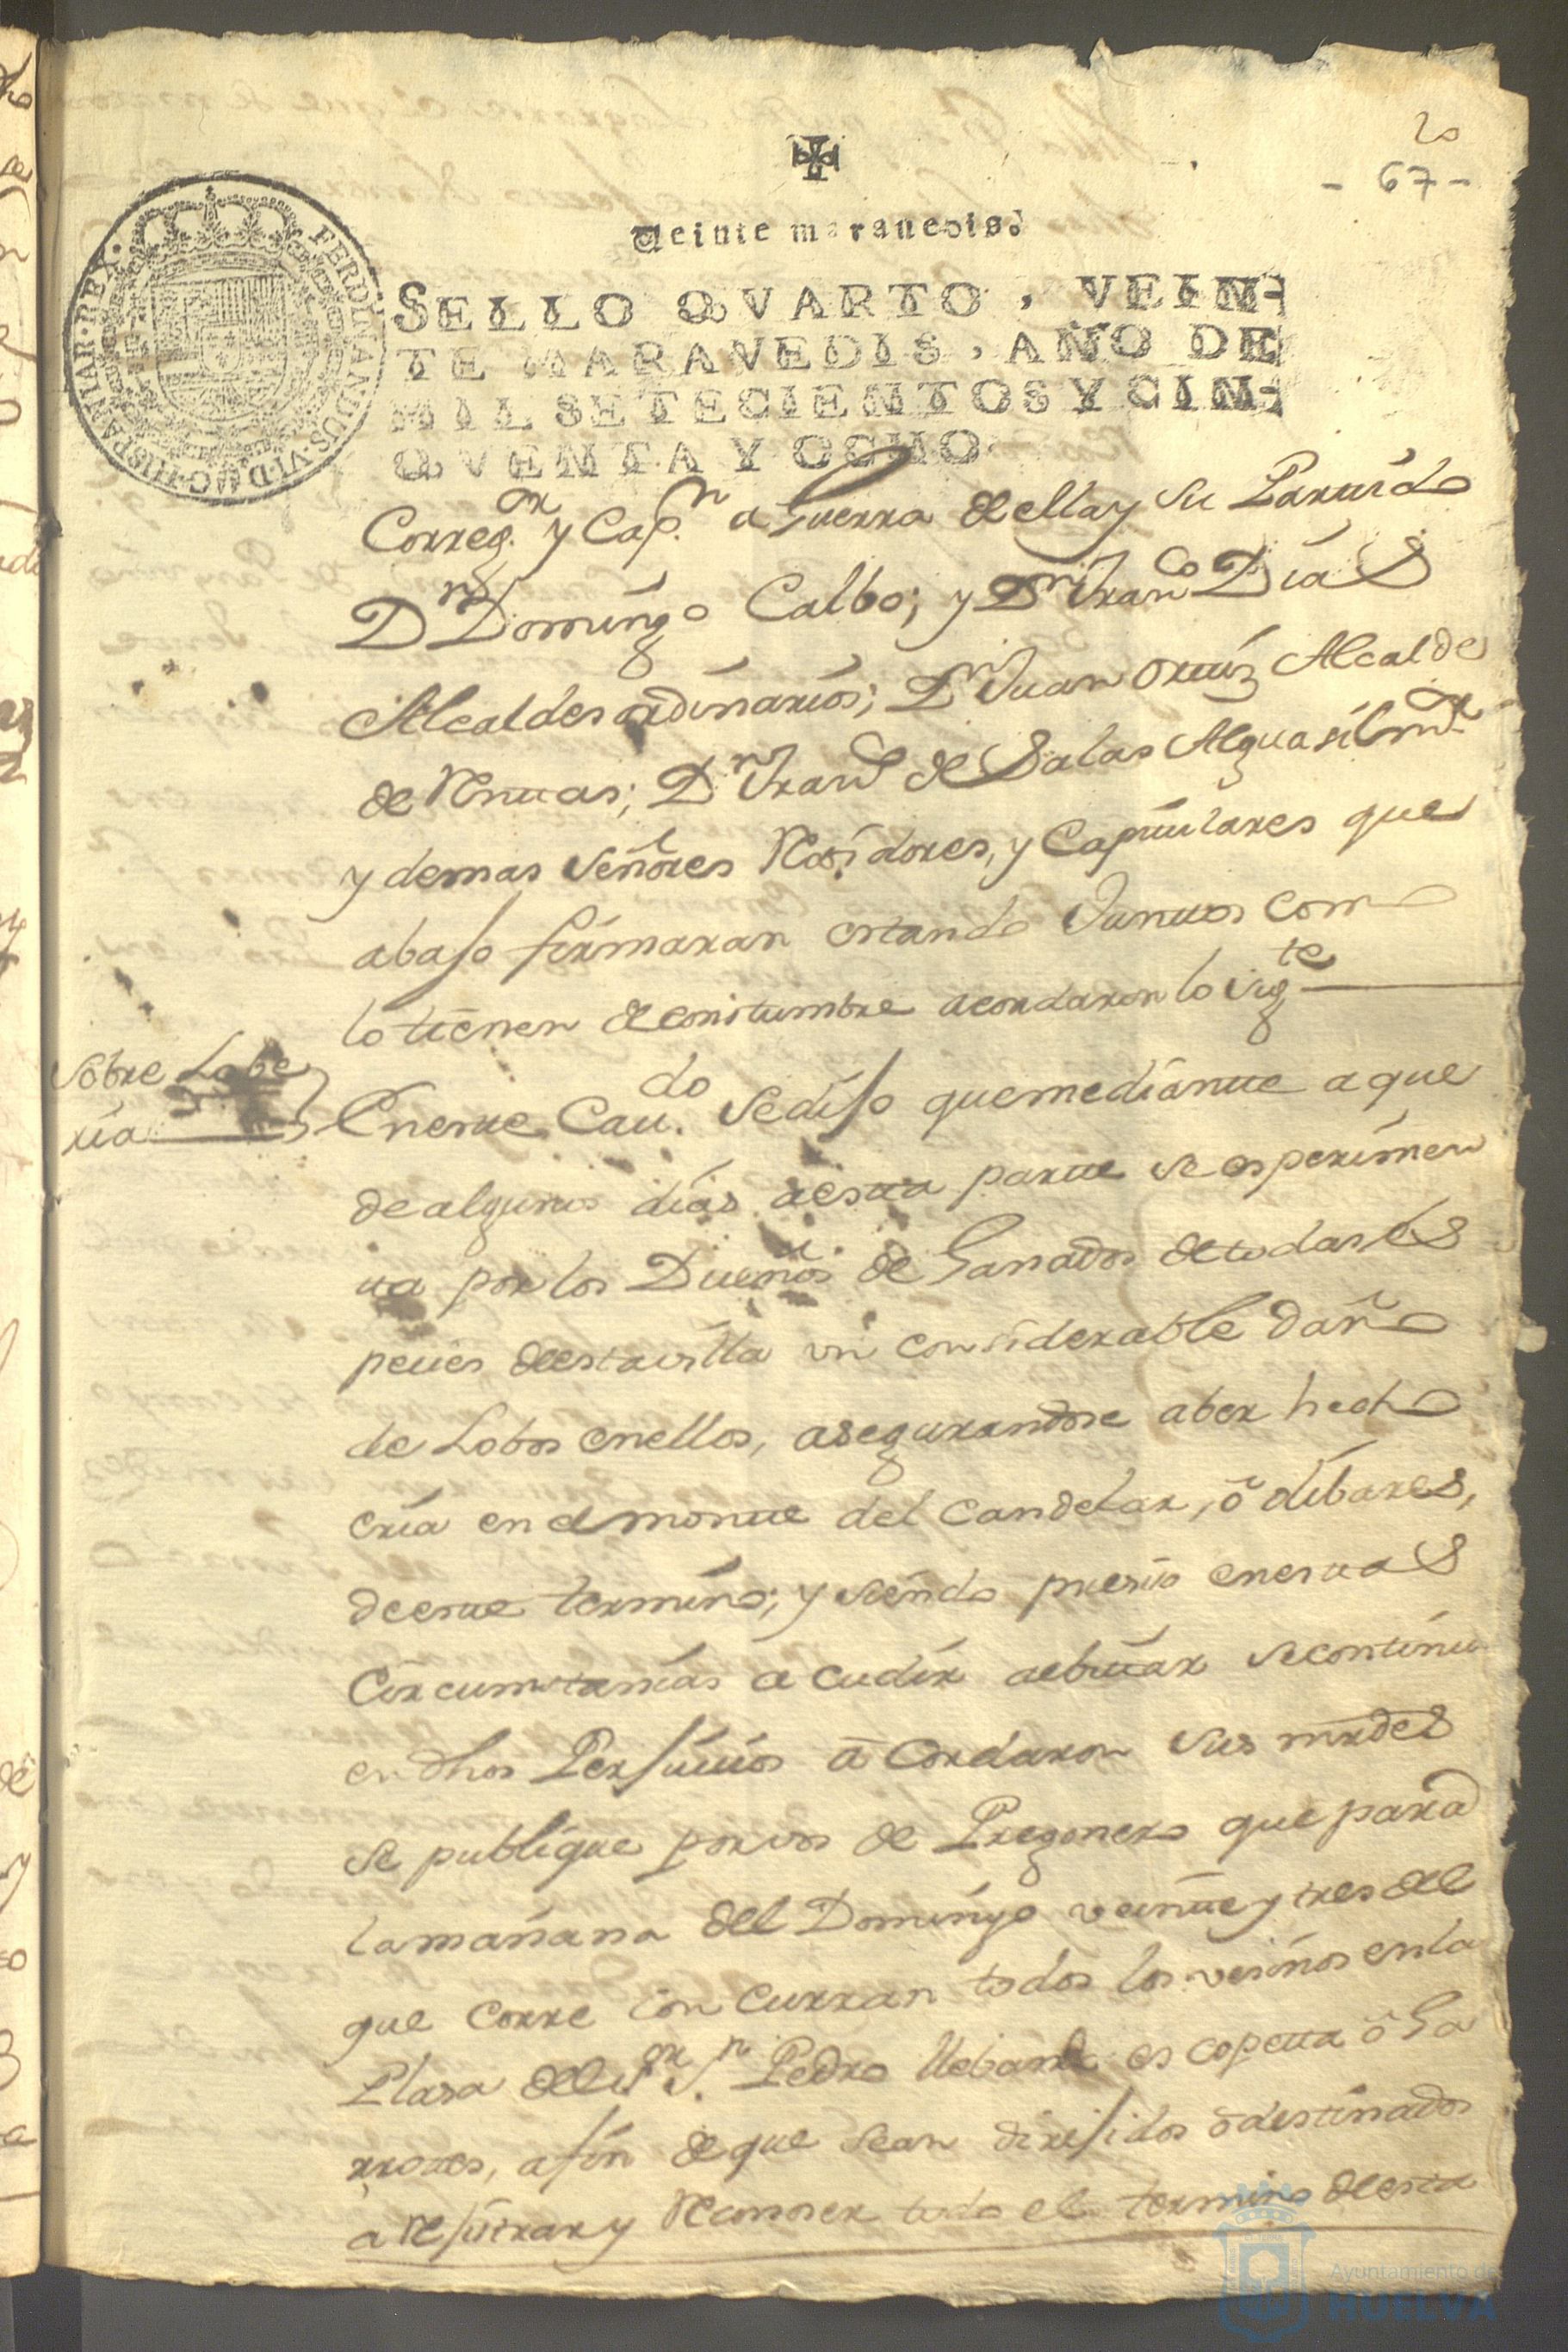 20
- 67 -
Veinte maravedis.
SELLO QVARTO, VEIN-
TE MARAVEDIS, AÑO DE
MIL SETECIENTOS Y CIN-
QVENTA Y OCHO.
FERDINANDUS·VI·D·G·HISPANIAR·REX·
Correg.or y Cap.n a Guerra de ella y su Partido
Dn Domingo Calbo; y Dn Franco Días
Alcaldes ordinarios; Dn Juan Ortiz Alcalde
de Rentas; Dn Franco de Salas Alguasil mr
y demas Señores Rexidores, y Capitulares que
abajo firmaran estando Juntos como
lo tienen de constumbre acordaron lo sigte
Sobre Lobe
ria
En este Cau.do se dijo que mediante a que
de algunos dias a esta parte se esperimen
ta por los Dueños de Ganados de todas es
pecies de esta villa un considerable daño
de Lobos en ellos, asegurandose aber hecho
cría en el monte del Candelar, ó dibares,
de este termino; y siendo presiso en estas
Circumstancias acudir a ebitar se continue
en dhos Perjuicios acordaron sus mrdes
se publique por vos de Pregonero que para
la mañana del Domingo veinte y tres del
que corre concurran todos los vesinos en la
Plasa del Sor Sn Pedro llebando escopeta ó Ga
rrotes, a fin de que sean dirijidos ó destinados
a rejistrar y Reconoser todo el termino de esta
Ayuntamiento de
HUELVA